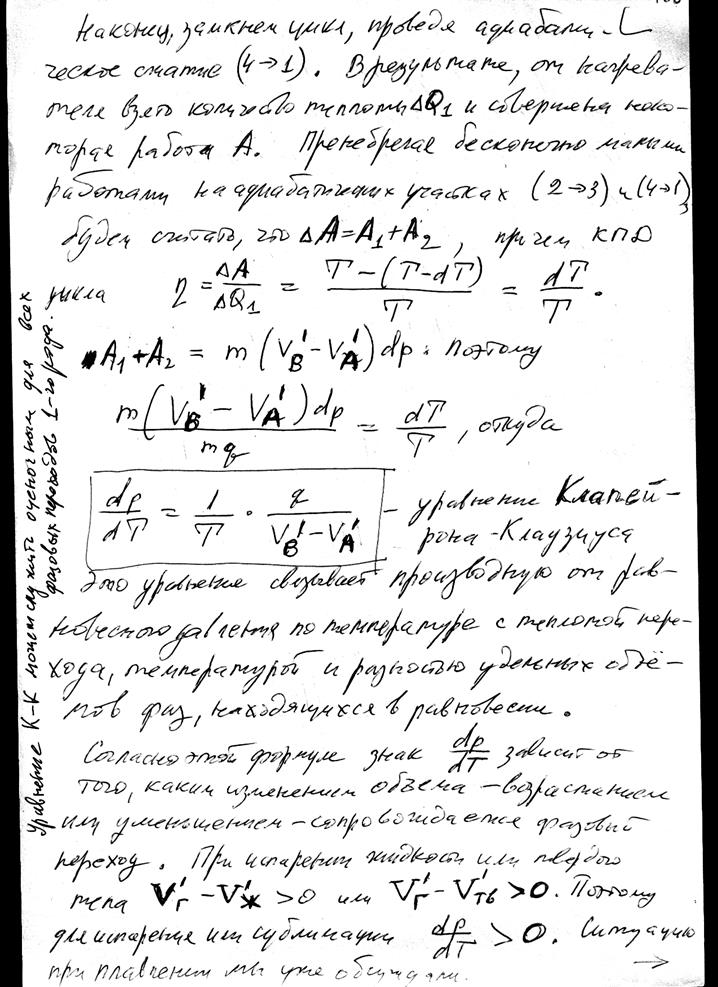 Наконец, замкнем цикл, проведя адиабати-
ческое сжатие (4→1). В результате, от нагрева-
теля взято количество теплоты ΔQ₁ и совершена неко-
торая работа A. Пренебрегая бесконечно малыми
работами на адиабатических участках (2→3) и (4→1),
будем считать, что ΔA=A₁+A₂, причем КПД
цикла η = ΔA/ΔQ₁ = (T-(T-dT))/T = dT/T.
A₁+A₂ = m(V'_B - V'_A)dp. Поэтому
m(V'_B - V'_A)dp/mq = dT/T, откуда
dp/dT = 1/T · q/(V'_B - V'_A) - уравнение Клапей-
рона-Клаузиуса
Это уравнение связывает производную от рав-
новесного давления по температуре с теплотой пере-
хода, температурой и разностью удельных объё-
мов фаз, находящихся в равновесии.
Согласно этой формуле знак dp/dT зависит от
того, каким изменением объема - возрастанием
или уменьшением - сопровождается фазовый
переход. При испарении жидкости или твердого
тела V'_г - V'_ж >0 или V'_г - V'_тв >0. Поэтому
для испарения или сублимации dp/dT > 0. Ситуацию
при плавлении мы уже обсуждали. →
Уравнение К-К может служить оценочным для всех
фазовых переходов 1-го рода.